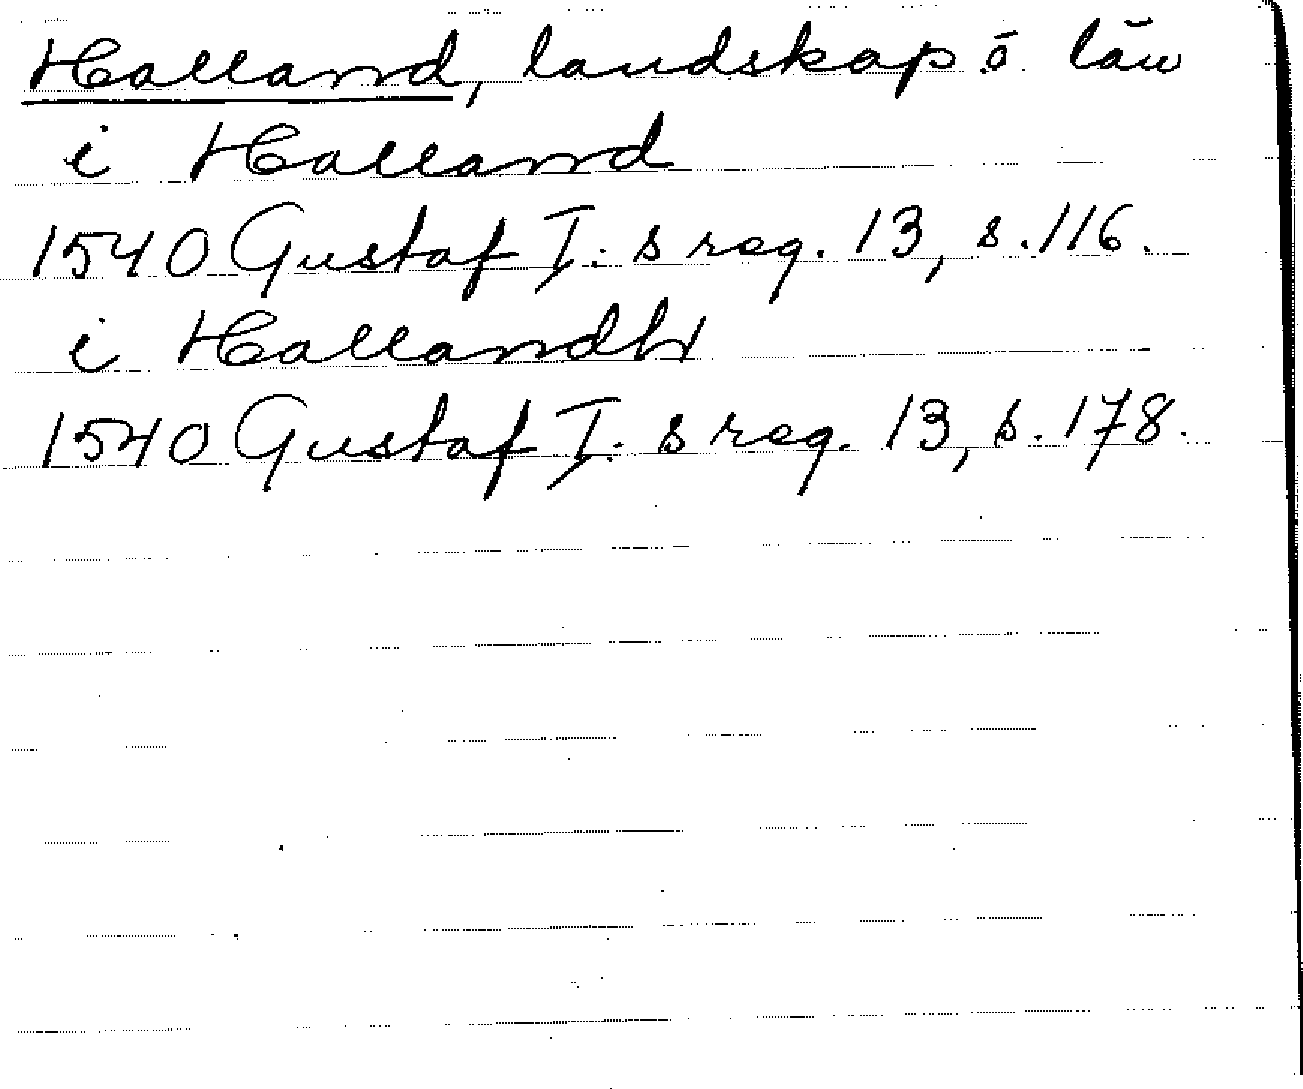 Halland, landskap o. län
i Halland
1540 Gustaf I: s reg. 13, s. 116.
i Hallandh
1540 Gustaf I: s reg. 13, s. 178.